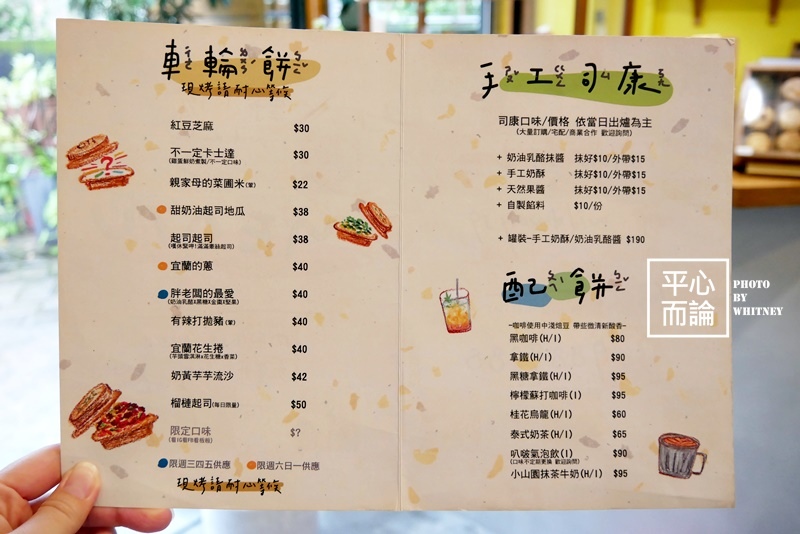 車輪餅
現烤請耐心等候
紅豆芝麻 $30
不一定卡士達 $30
(雞蛋鮮奶煮製/不一定口味)
親家母的菜圃米(葷) $22
甜奶油起司地瓜 $38
起司起司 $38
宜蘭的蔥 $40
胖老闆的最愛 $40
(奶油乳酪x黑糖x金棗x堅果)
有辣打拋豬(葷) $40
宜蘭花生捲 $40
(芋頭雪淇淋x花生糖x香菜)
奶黃芋芋流沙 $42
榴槤起司(每日限量) $50
限定口味 $?
(看IG看FB看板板)
限週三四五供應 限週六日一供應
現烤請耐心等候
手工司康
司康口味/價格 依當日出爐為主
(大量訂購/宅配/商業合作 歡迎詢問)
+ 奶油乳酪抹醬 抹好$10/外帶$15
+ 手工奶酥 抹好$10/外帶$15
+ 天然果醬 抹好$10/外帶$15
+ 自製餡料 $10/份
+ 罐裝-手工奶酥/奶油乳酪醬 $190
配餅
-咖啡使用中淺焙豆 帶些微清新酸香-
黑咖啡(H/I) $80
拿鐵(H/I) $90
黑糖拿鐵(H/I) $95
檸檬蘇打咖啡(I) $95
桂花烏龍(H/I) $60
泰式奶茶(H/I) $65
叭啵氣泡飲(I) $90
(口味不定期更換 歡迎詢問)
小山園抹茶牛奶(H/I) $95
平心
而論
PHOTO
BY
WHITNEY